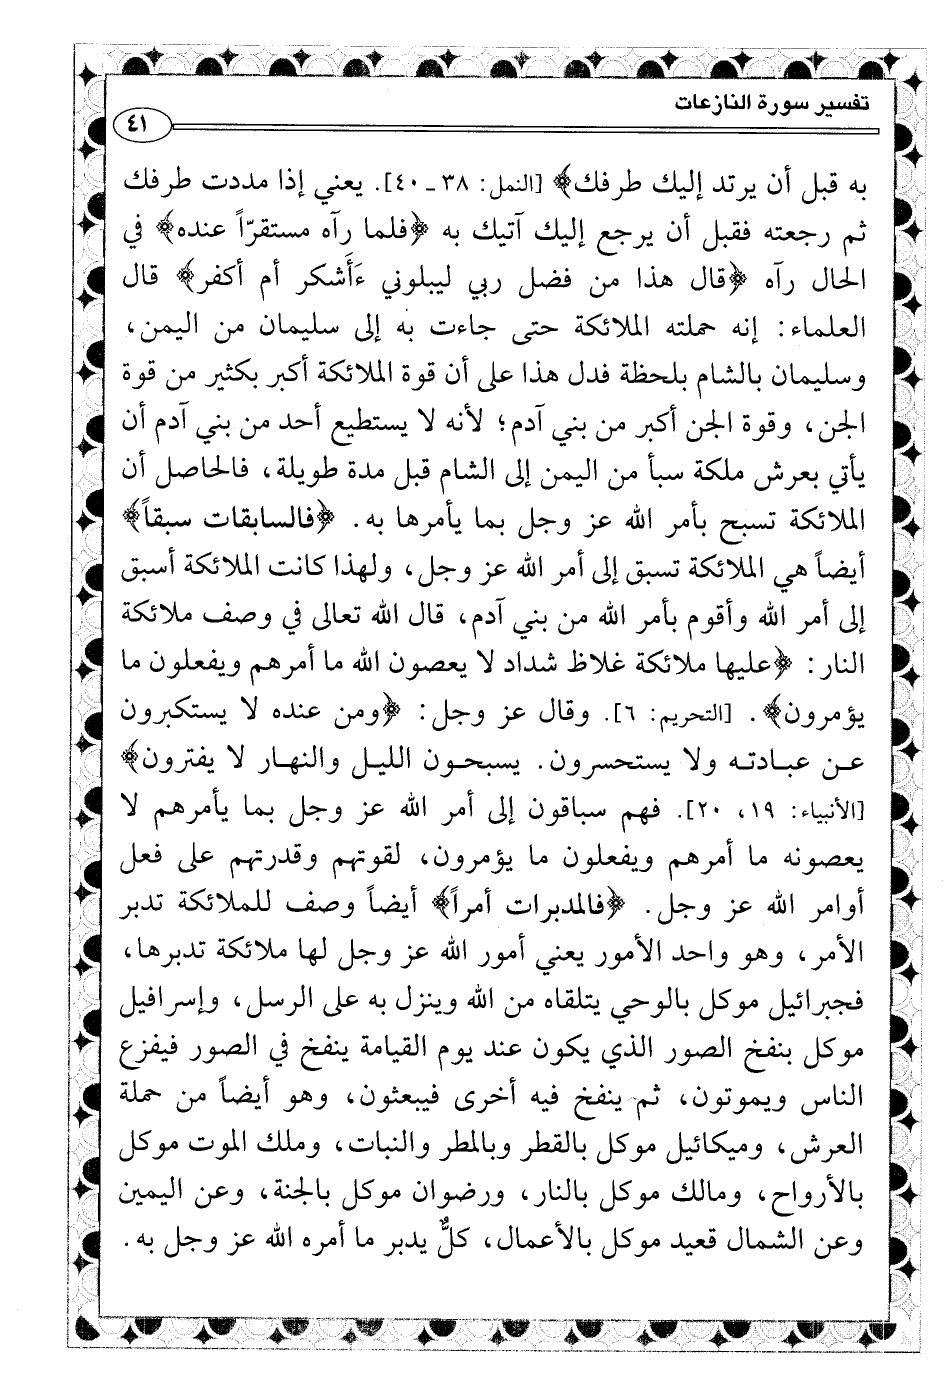 تفسير سورة النازعات
٤١
به قبل أن يرتد إليك طرفك﴾ [النمل: ٣٨ ـ ٤٠]. يعني إذا مددت طرفك
ثم رجعته فقبل أن يرجع إليك آتيك به ﴿فلما رآه مستقرّاً عنده﴾ في
الحال رآه ﴿قال هذا من فضل ربي ليبلوني ءَأَشكر أم أكفر﴾ قال
العلماء: إنه حملته الملائكة حتى جاءت به إلى سليمان من اليمن،
وسليمان بالشام بلحظة فدل هذا على أن قوة الملائكة أكبر بكثير من قوة
الجن، وقوة الجن أكبر من بني آدم؛ لأنه لا يستطيع أحد من بني آدم أن
يأتي بعرش ملكة سبأ من اليمن إلى الشام قبل مدة طويلة، فالحاصل أن
الملائكة تسبح بأمر الله عز وجل بما يأمرها به. ﴿فالسابقات سبقاً﴾
أيضاً هي الملائكة تسبق إلى أمر الله عز وجل، ولهذا كانت الملائكة أسبق
إلى أمر الله وأقوم بأمر الله من بني آدم، قال الله تعالى في وصف ملائكة
النار: ﴿عليها ملائكة غلاظ شداد لا يعصون الله ما أمرهم ويفعلون ما
يؤمرون﴾. [التحريم: ٦]. وقال عز وجل: ﴿ومن عنده لا يستكبرون
عن عبادته ولا يستحسرون. يسبحون الليل والنهار لا يفترون﴾
[الأنبياء: ١٩، ٢٠]. فهم سباقون إلى أمر الله عز وجل بما يأمرهم لا
يعصونه ما أمرهم ويفعلون ما يؤمرون، لقوتهم وقدرتهم على فعل
أوامر الله عز وجل. ﴿فالمدبرات أمراً﴾ أيضاً وصف للملائكة تدبر
الأمر، وهو واحد الأمور يعني أمور الله عز وجل لها ملائكة تدبرها،
فجبرائيل موكل بالوحي يتلقاه من الله وينزل به على الرسل، وإسرافيل
موكل بنفخ الصور الذي يكون عند يوم القيامة ينفخ في الصور فيفزع
الناس ويموتون، ثم ينفخ فيه أخرى فيبعثون، وهو أيضاً من حملة
العرش، وميكائيل موكل بالقطر وبالمطر والنبات، وملك الموت موكل
بالأرواح، ومالك موكل بالنار، ورضوان موكل بالجنة، وعن اليمين
وعن الشمال قعيد موكل بالأعمال، كلٌّ يدبر ما أمره الله عز وجل به.